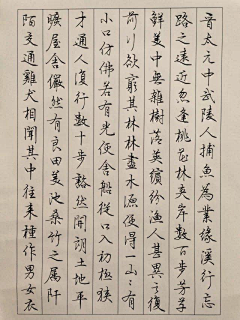 晉太元中武陵人捕魚為業緣溪行忘
路之遠近忽逢桃花林夾岸數百步芳草
鮮美中無雜樹落英繽紛漁人甚異之復
前行欲窮其林林盡水源便得一山〻有
小口仿佛若有光便舍船從口入初極狹
才通人復行數十步豁然開朗土地平
曠屋舍儼然有良田美池桑竹之屬阡
陌交通雞犬相聞其中往來種作男女衣